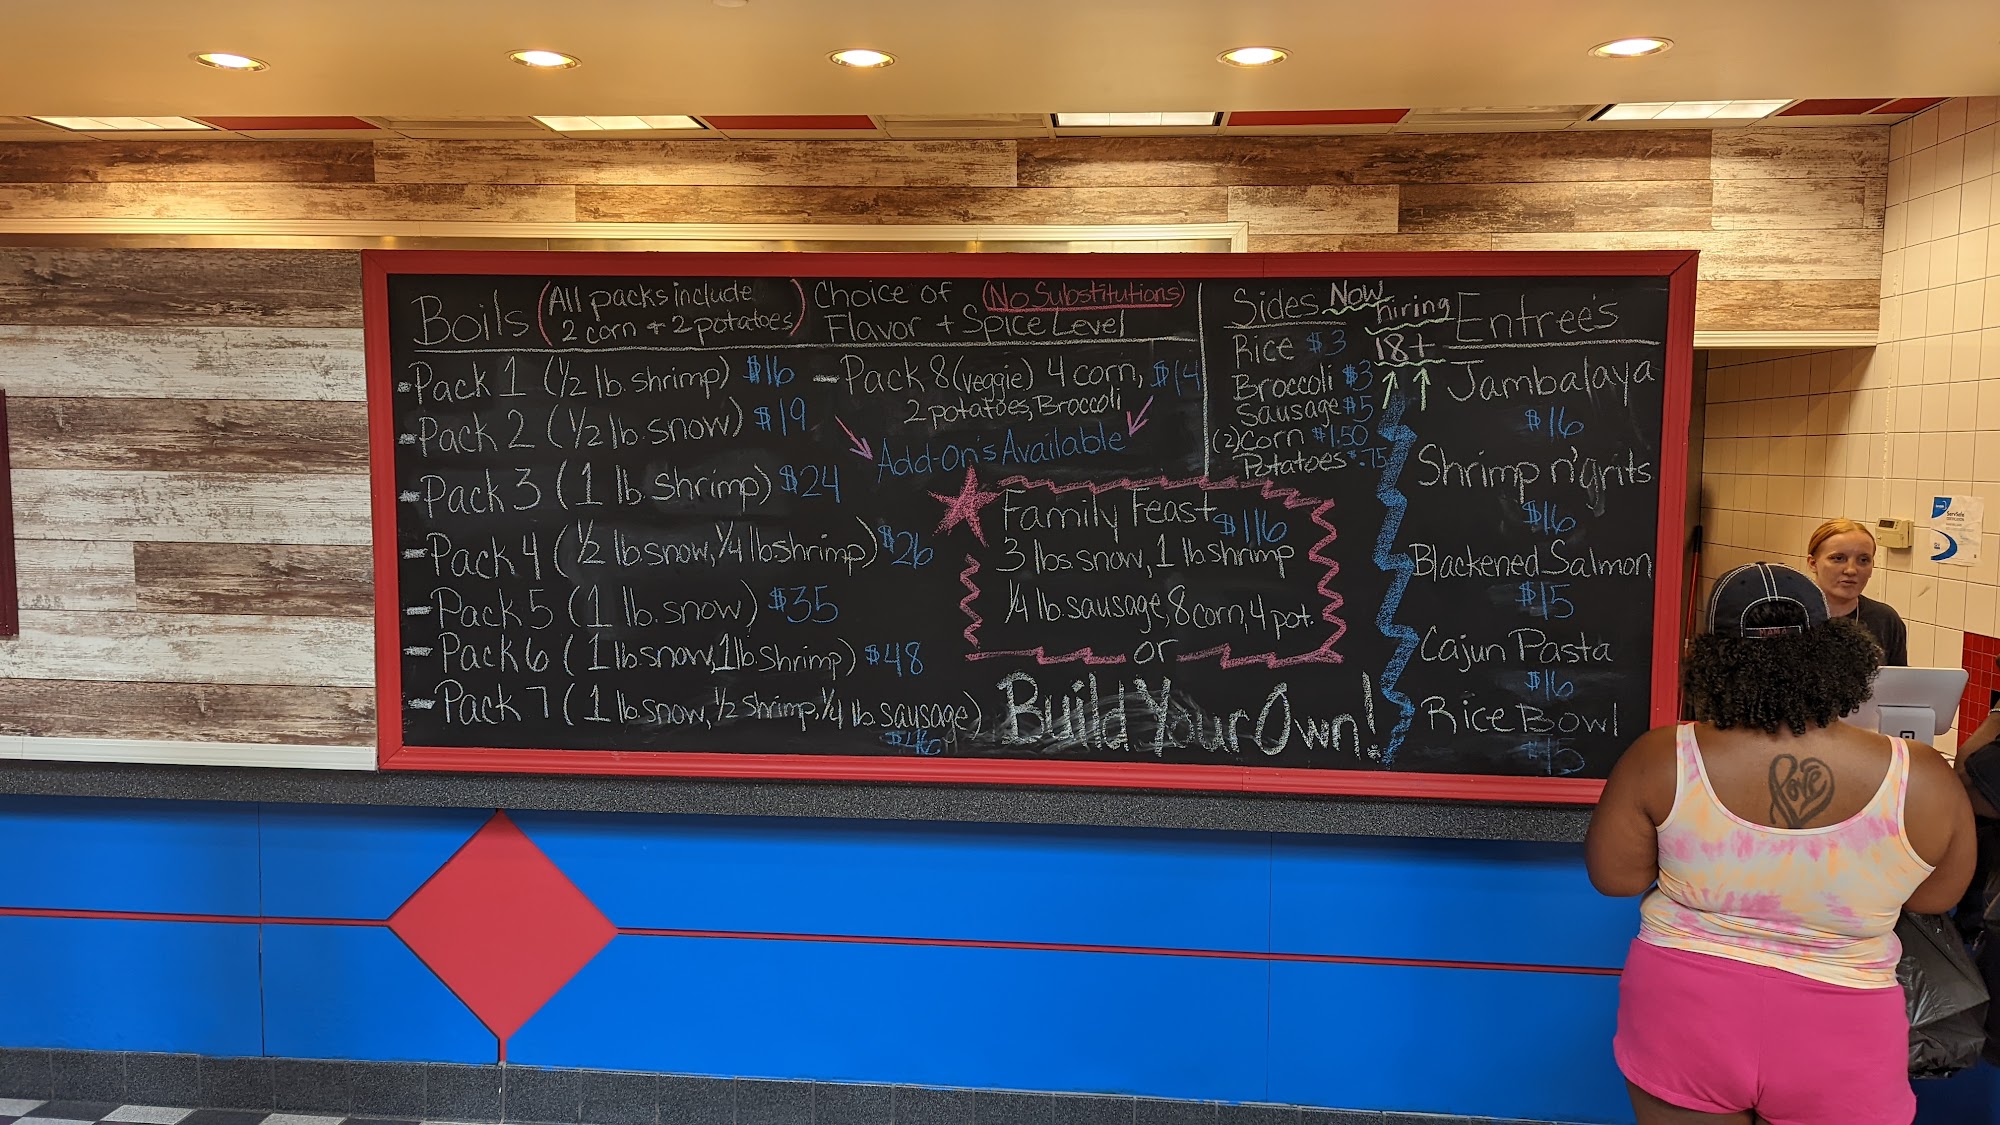 Boils (All packs include
2 corn + 2 potatoes)
Choice of
Flavor + Spice Level
(No Substitutions)
- Pack 1 (1/2 lb. shrimp) $16
- Pack 2 (1/2 lb. snow) $19
- Pack 3 (1 lb. shrimp) $24
- Pack 4 (1/2 lb snow, 1/4 lb shrimp) $26
- Pack 5 (1 lb. snow) $35
- Pack 6 (1 lb snow, 1 lb. shrimp) $48
- Pack 7 (1 lb snow, 1/2 shrimp, 1/4 lb sausage)
$46
- Pack 8 (veggie) 4 corn, $14
2 potatoes, Broccoli
Add-On's Available
Family Feast $116
3 lbs snow, 1 lb shrimp
1/4 lb sausage, 8 corn, 4 pot.
or
Build Your Own!
Sides
Rice $3
Broccoli $3
Sausage $5
(2) Corn $1.50
Potatoes $.75
Now
hiring
18+
Entree's
Jambalaya
$16
Shrimp n' grits
$16
Blackened Salmon
$15
Cajun Pasta
$16
Rice Bowl
$15
ServSafe
MAMA
Love